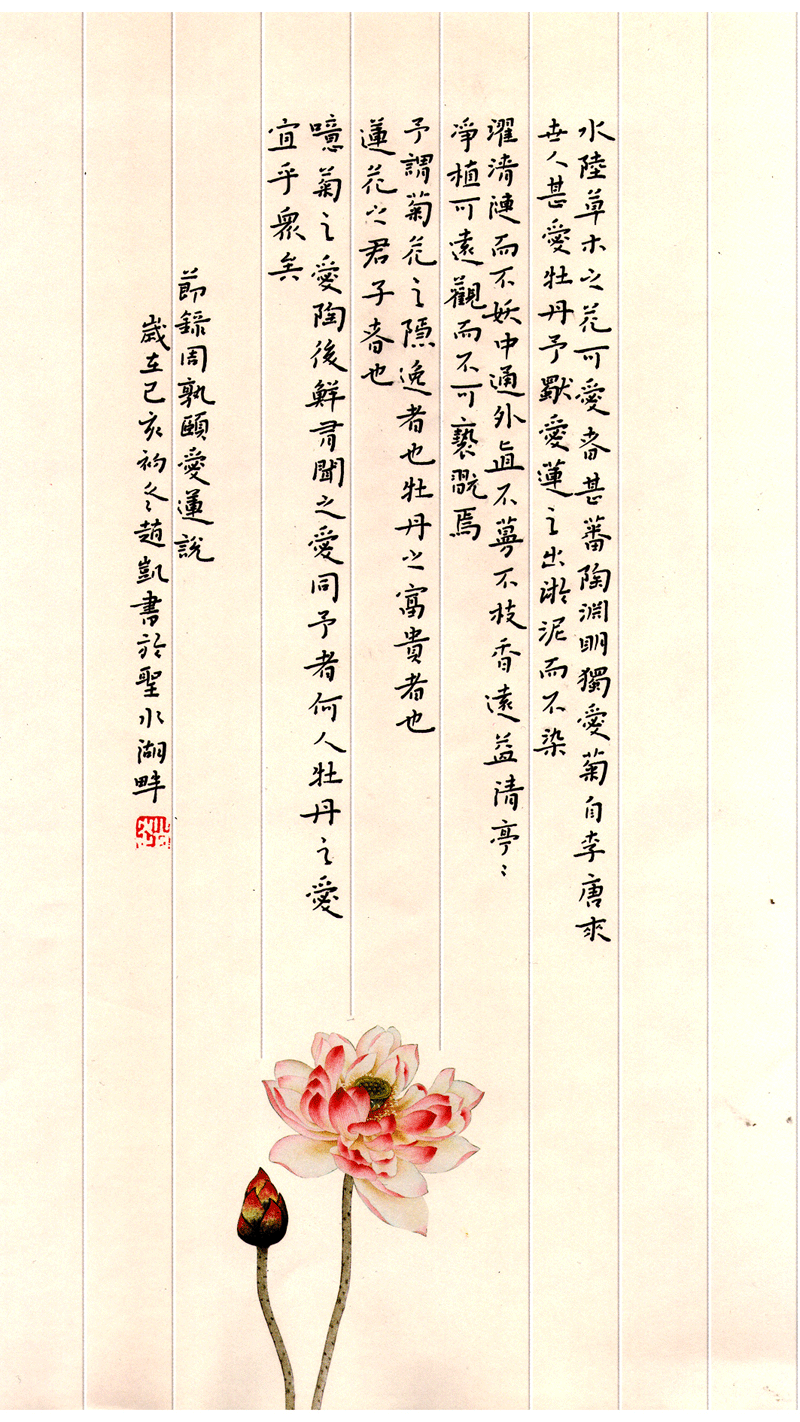 水陸草木之花可愛者甚蕃陶淵明獨愛菊自李唐來
世人甚愛牡丹予獨愛蓮之出淤泥而不染
濯清漣而不妖中通外直不蔓不枝香遠益清亭〻
淨植可遠觀而不可褻翫焉
予謂菊花之隱逸者也牡丹之富貴者也
蓮花之君子者也
噫菊之愛陶後鮮有聞之愛同予者何人牡丹之愛
宜乎眾矣
節錄周敦頤愛蓮說
歲在己亥初冬趙凱書於聖水湖畔